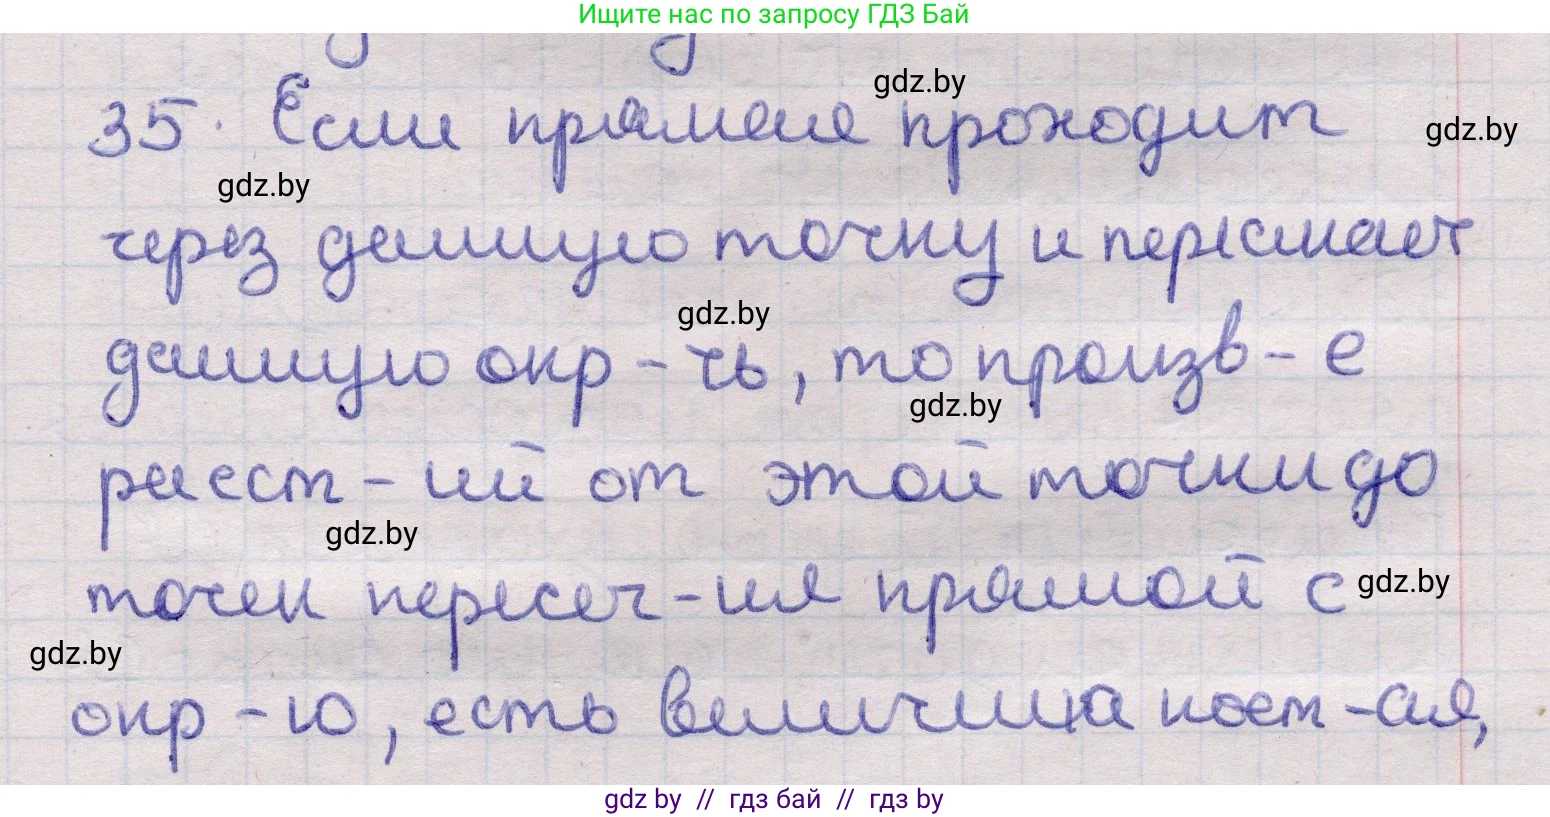 Ищите нас по запросу ГДЗ Бай
gdz.by
35. Если прямая проходит
gdz.by
gdz.by
через данную точку и пересекает
gdz.by
данную окр-ть, то произв-е
gdz.by
расст-ий от этой точки до
gdz.by
точек пересеч-ия прямой с
gdz.by
gdz.by
окр-ю, есть величина пост-ая,
gdz by // гдз бай // гдз by